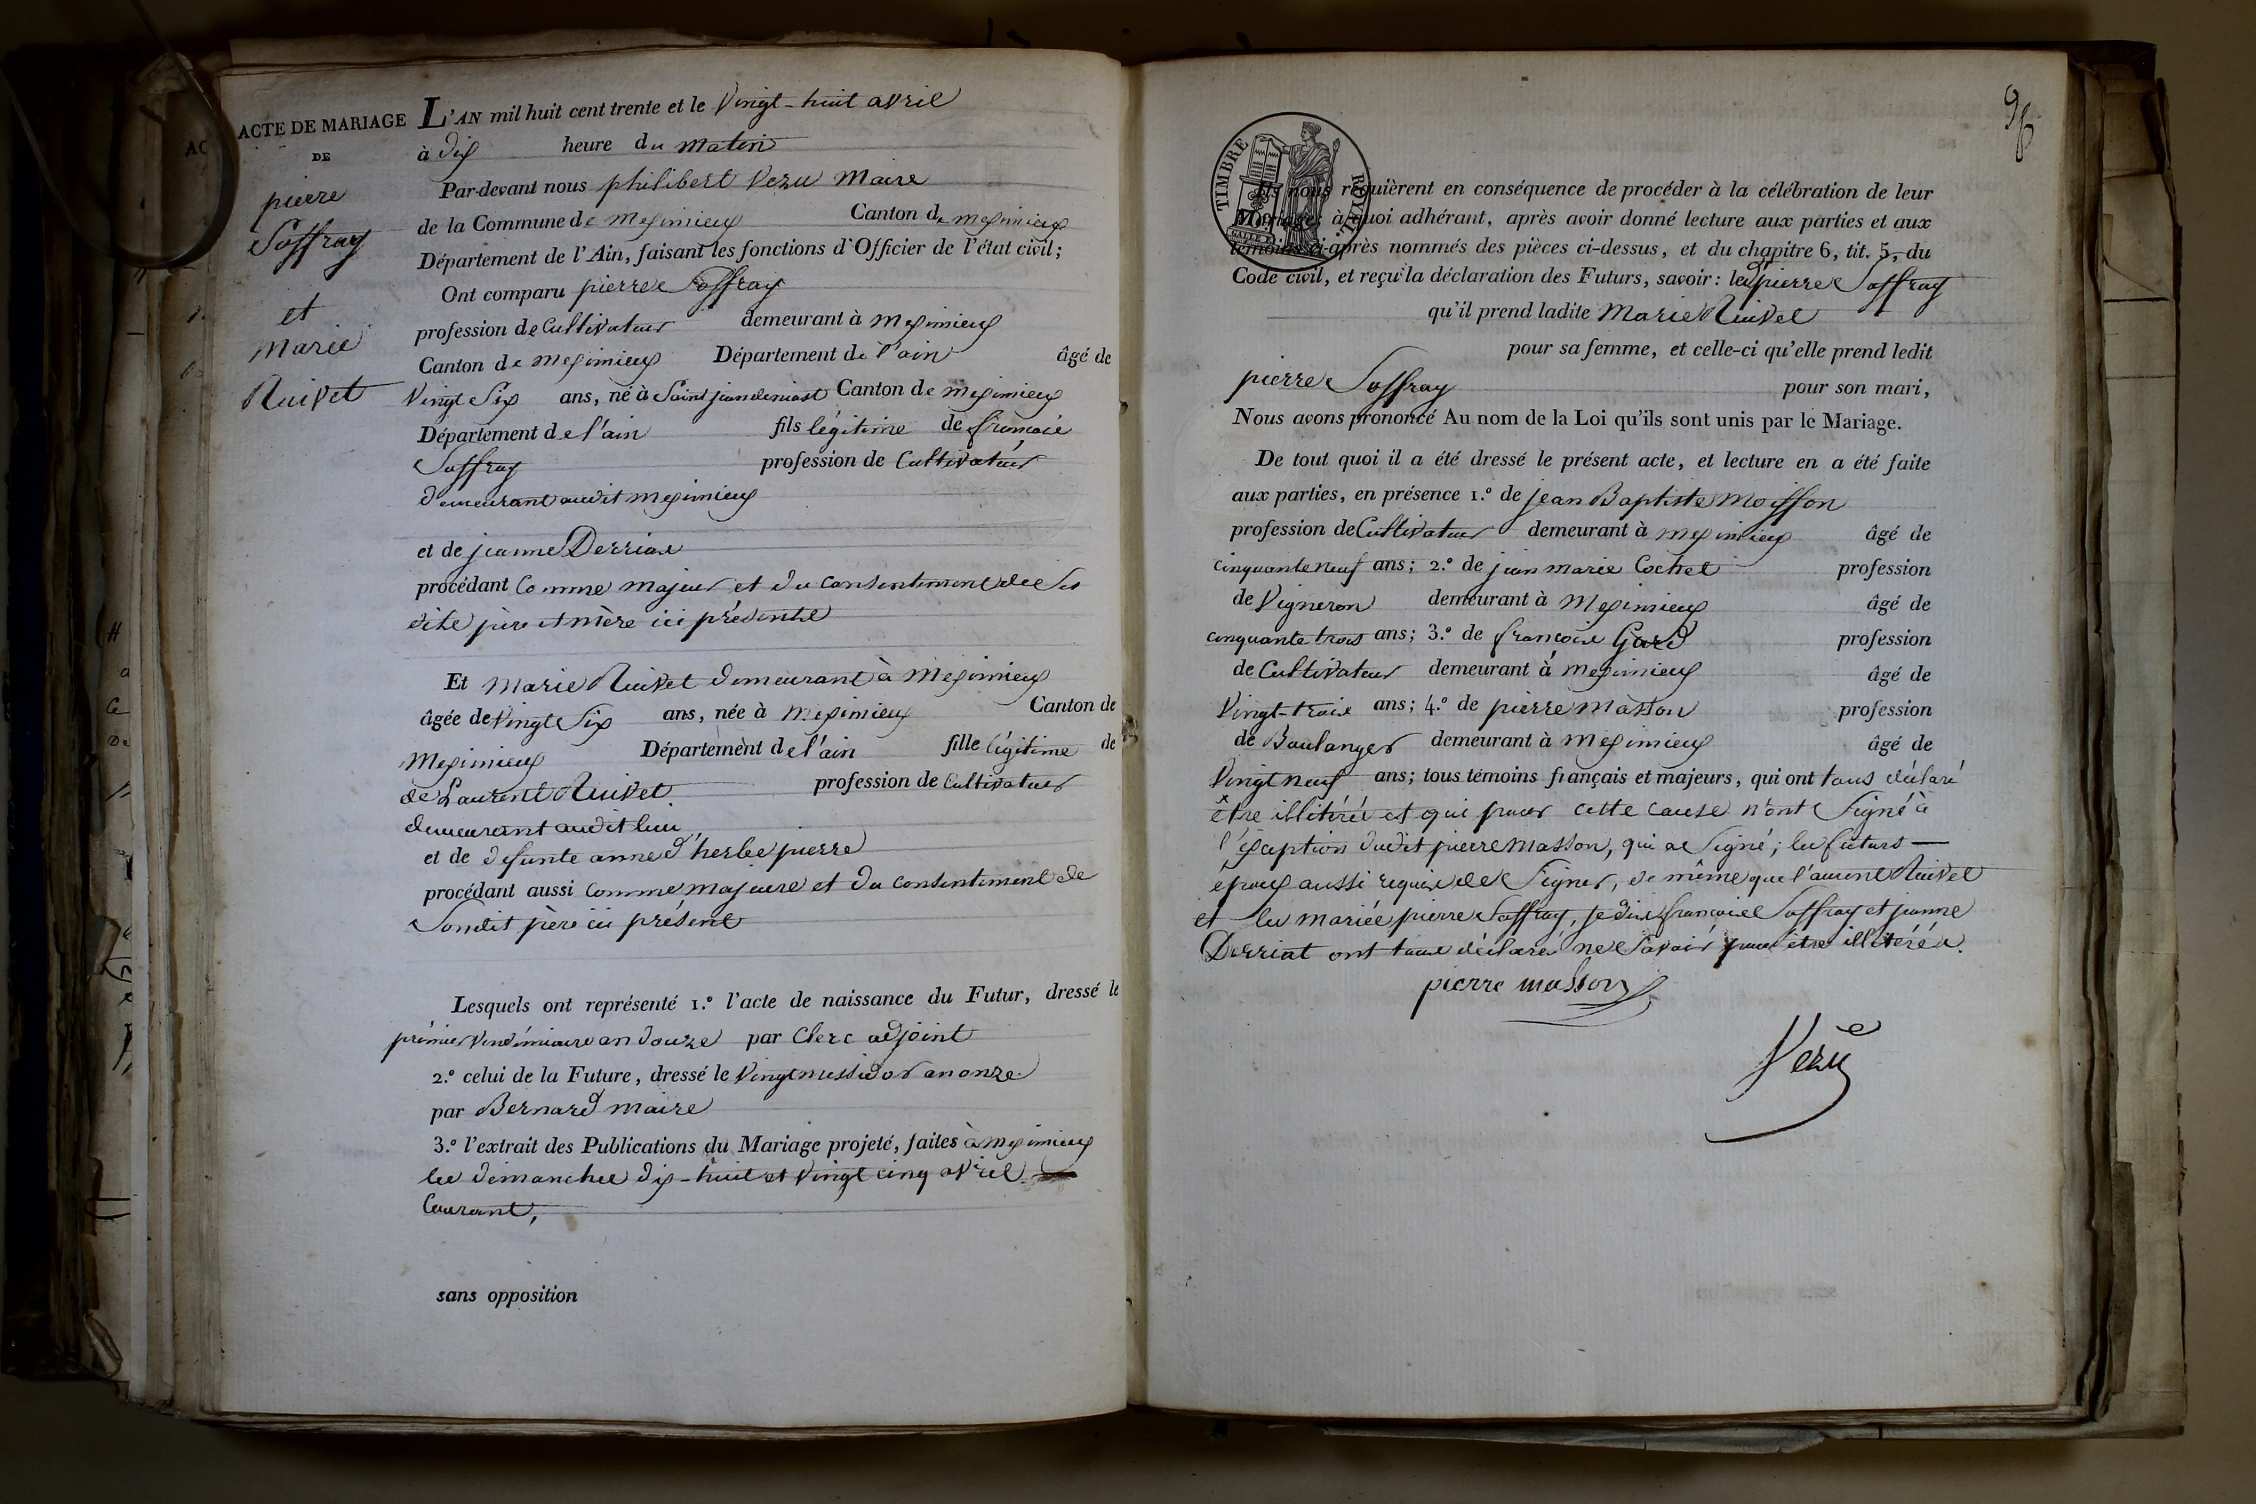 ACTE DE MARIAGE
DE
pierre
Soffray
et
Marie
Ruivet
L'AN mil huit cent trente et le Vingt-huit avril
à dix heure du matin
Par-devant nous philibert Vezu Maire
de la Commune de meximieux Canton de meximieux
Département de l'Ain, faisant les fonctions d'Officier de l'état civil;
Ont comparu pierre Soffray
profession de Cultivateur demeurant à meximieux
Canton de meximieux Département de l'ain âgé de
Vingt Six ans, né à Saint jean deniost Canton de meximieux
Département de l'ain fils légitime de francoie
Soffray profession de Cultivateur
demeurant audit meximieux
et de jeanne Derriat
procédant Comme majeur et du consentement de Ses
dite père et mère ici présents
Et Marie Ruivet demeurant à Meximieux
âgée de Vingt Six ans, née à Meximieux Canton de
Meximieux Département de l'ain fille légitime de
de Laurent Ruivet profession de Cultivateur
demeurant audit lieu
et de defunte anne d'herbepierre
procédant aussi comme majeure et du consentiment de
Sondit père ici présent
Lesquels ont représenté 1.º l'acte de naissance du Futur, dressé le
prémier Vendémiaire an douze par Clerc adjoint
2.º celui de la Future, dressé le Vingt messidor an onze
par Bernard maire
3.º l'extrait des Publications du Mariage projeté, faites à meximieux
les dimanches dix-huit et Vingt cinq avril
Courant,
sans opposition
96
TIMBRE ROYAL
Ils nous requièrent en conséquence de procéder à la célébration de leur
Mariage; à quoi adhérant, après avoir donné lecture aux parties et aux
témoins ci-après nommés des pièces ci-dessus, et du chapitre 6, tit. 5, du
Code civil, et reçu la déclaration des Futurs, savoir: led. pierre Soffray
qu'il prend ladite Marie Ruivet
pour sa femme, et celle-ci qu'elle prend ledit
pierre Soffray pour son mari,
Nous avons prononcé Au nom de la Loi qu'ils sont unis par le Mariage.
De tout quoi il a été dressé le présent acte, et lecture en a été faite
aux parties, en présence 1.º de jean Baptiste Moisson
profession de Cultivateur demeurant à meximieux âgé de
cinquante neuf ans; 2.º de jean marie Cochet profession
de Vigneron demeurant à Meximieux âgé de
cinquante trois ans; 3.º de francoie Gard profession
de Cultivateur demeurant à meximieux âgé de
Vingt-trois ans; 4.º de pierre masson profession
de Boulanger demeurant à Meximieux âgé de
Vingt neuf ans; tous témoins français et majeurs, qui ont tous déclaré
être illitéré et qui pour cette cause n'ont Signé à
l'éxception dudit pierre masson, qui a Signé; les futurs
epoux aussi requis de Signer, de même que l'aurent Ruivet
et les mariée pierre Soffray, je dis francoie Soffray et jeanne
Derriat ont tous déclaré ne Savoir pour être illitéré.
pierre masson
Vezu